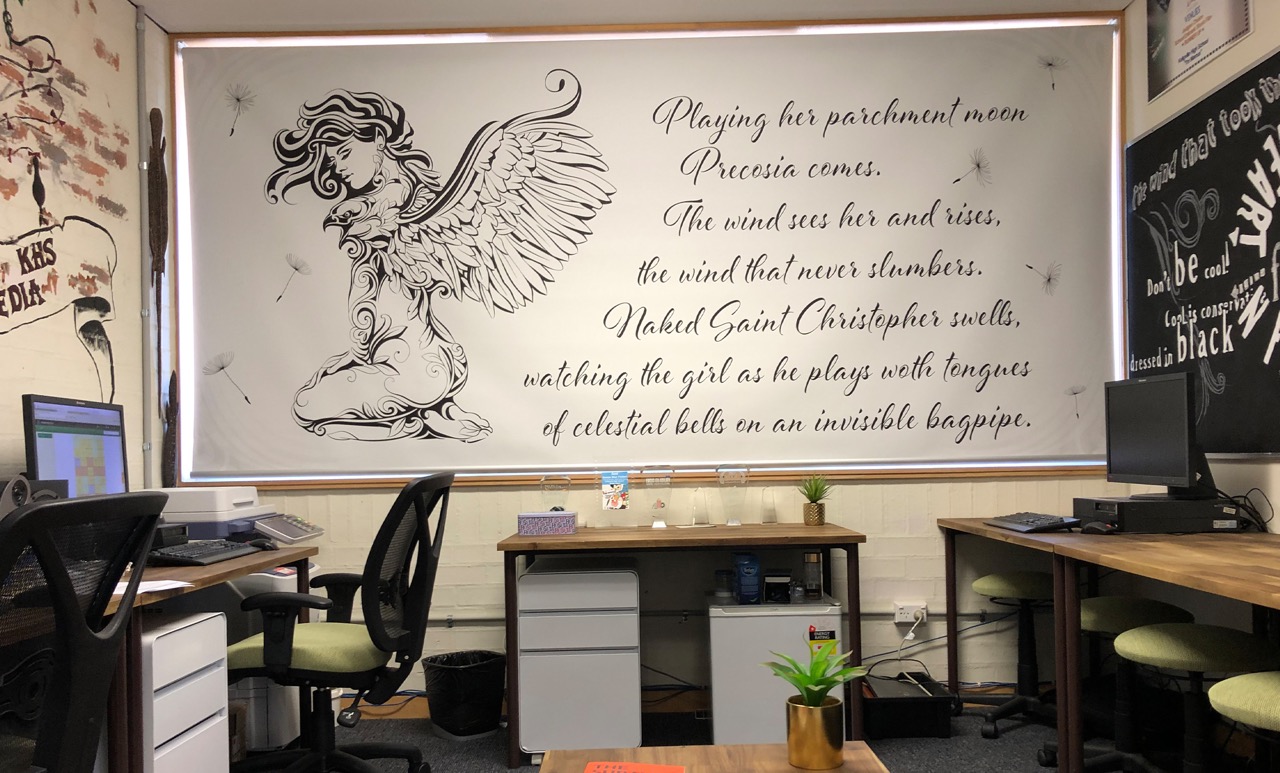 Playing her parchment moon
Precosia comes.
The wind sees her and rises,
the wind that never slumbers.
Naked Saint Christopher swells,
watching the girl as he plays woth tongues
of celestial bells on an invisible bagpipe.
KHS
EDIA
the wind that took the
Don't be cool
Cool is conservat
dressed in black
ART
ENERGY
RATING